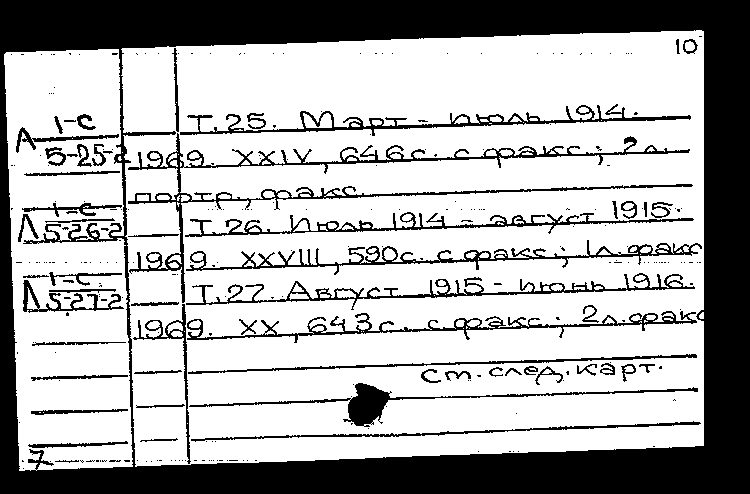 10
1-С
Т.25. Март – июль 1914.
А 5-25-2 1969. XXIV, 646с. с факс.; 2л.
портр., факс.
1-С Т.26. Июль 1914 – август 1915.
Л 5-26-2
1969. XXVIII, 590с. с факс.; 1л. факс
1-С. Т.27. Август 1915 – июнь 1916.
Л 5-27-2
1969. XX, 643с. с факс.; 2л. факс
См. след. карт.
7